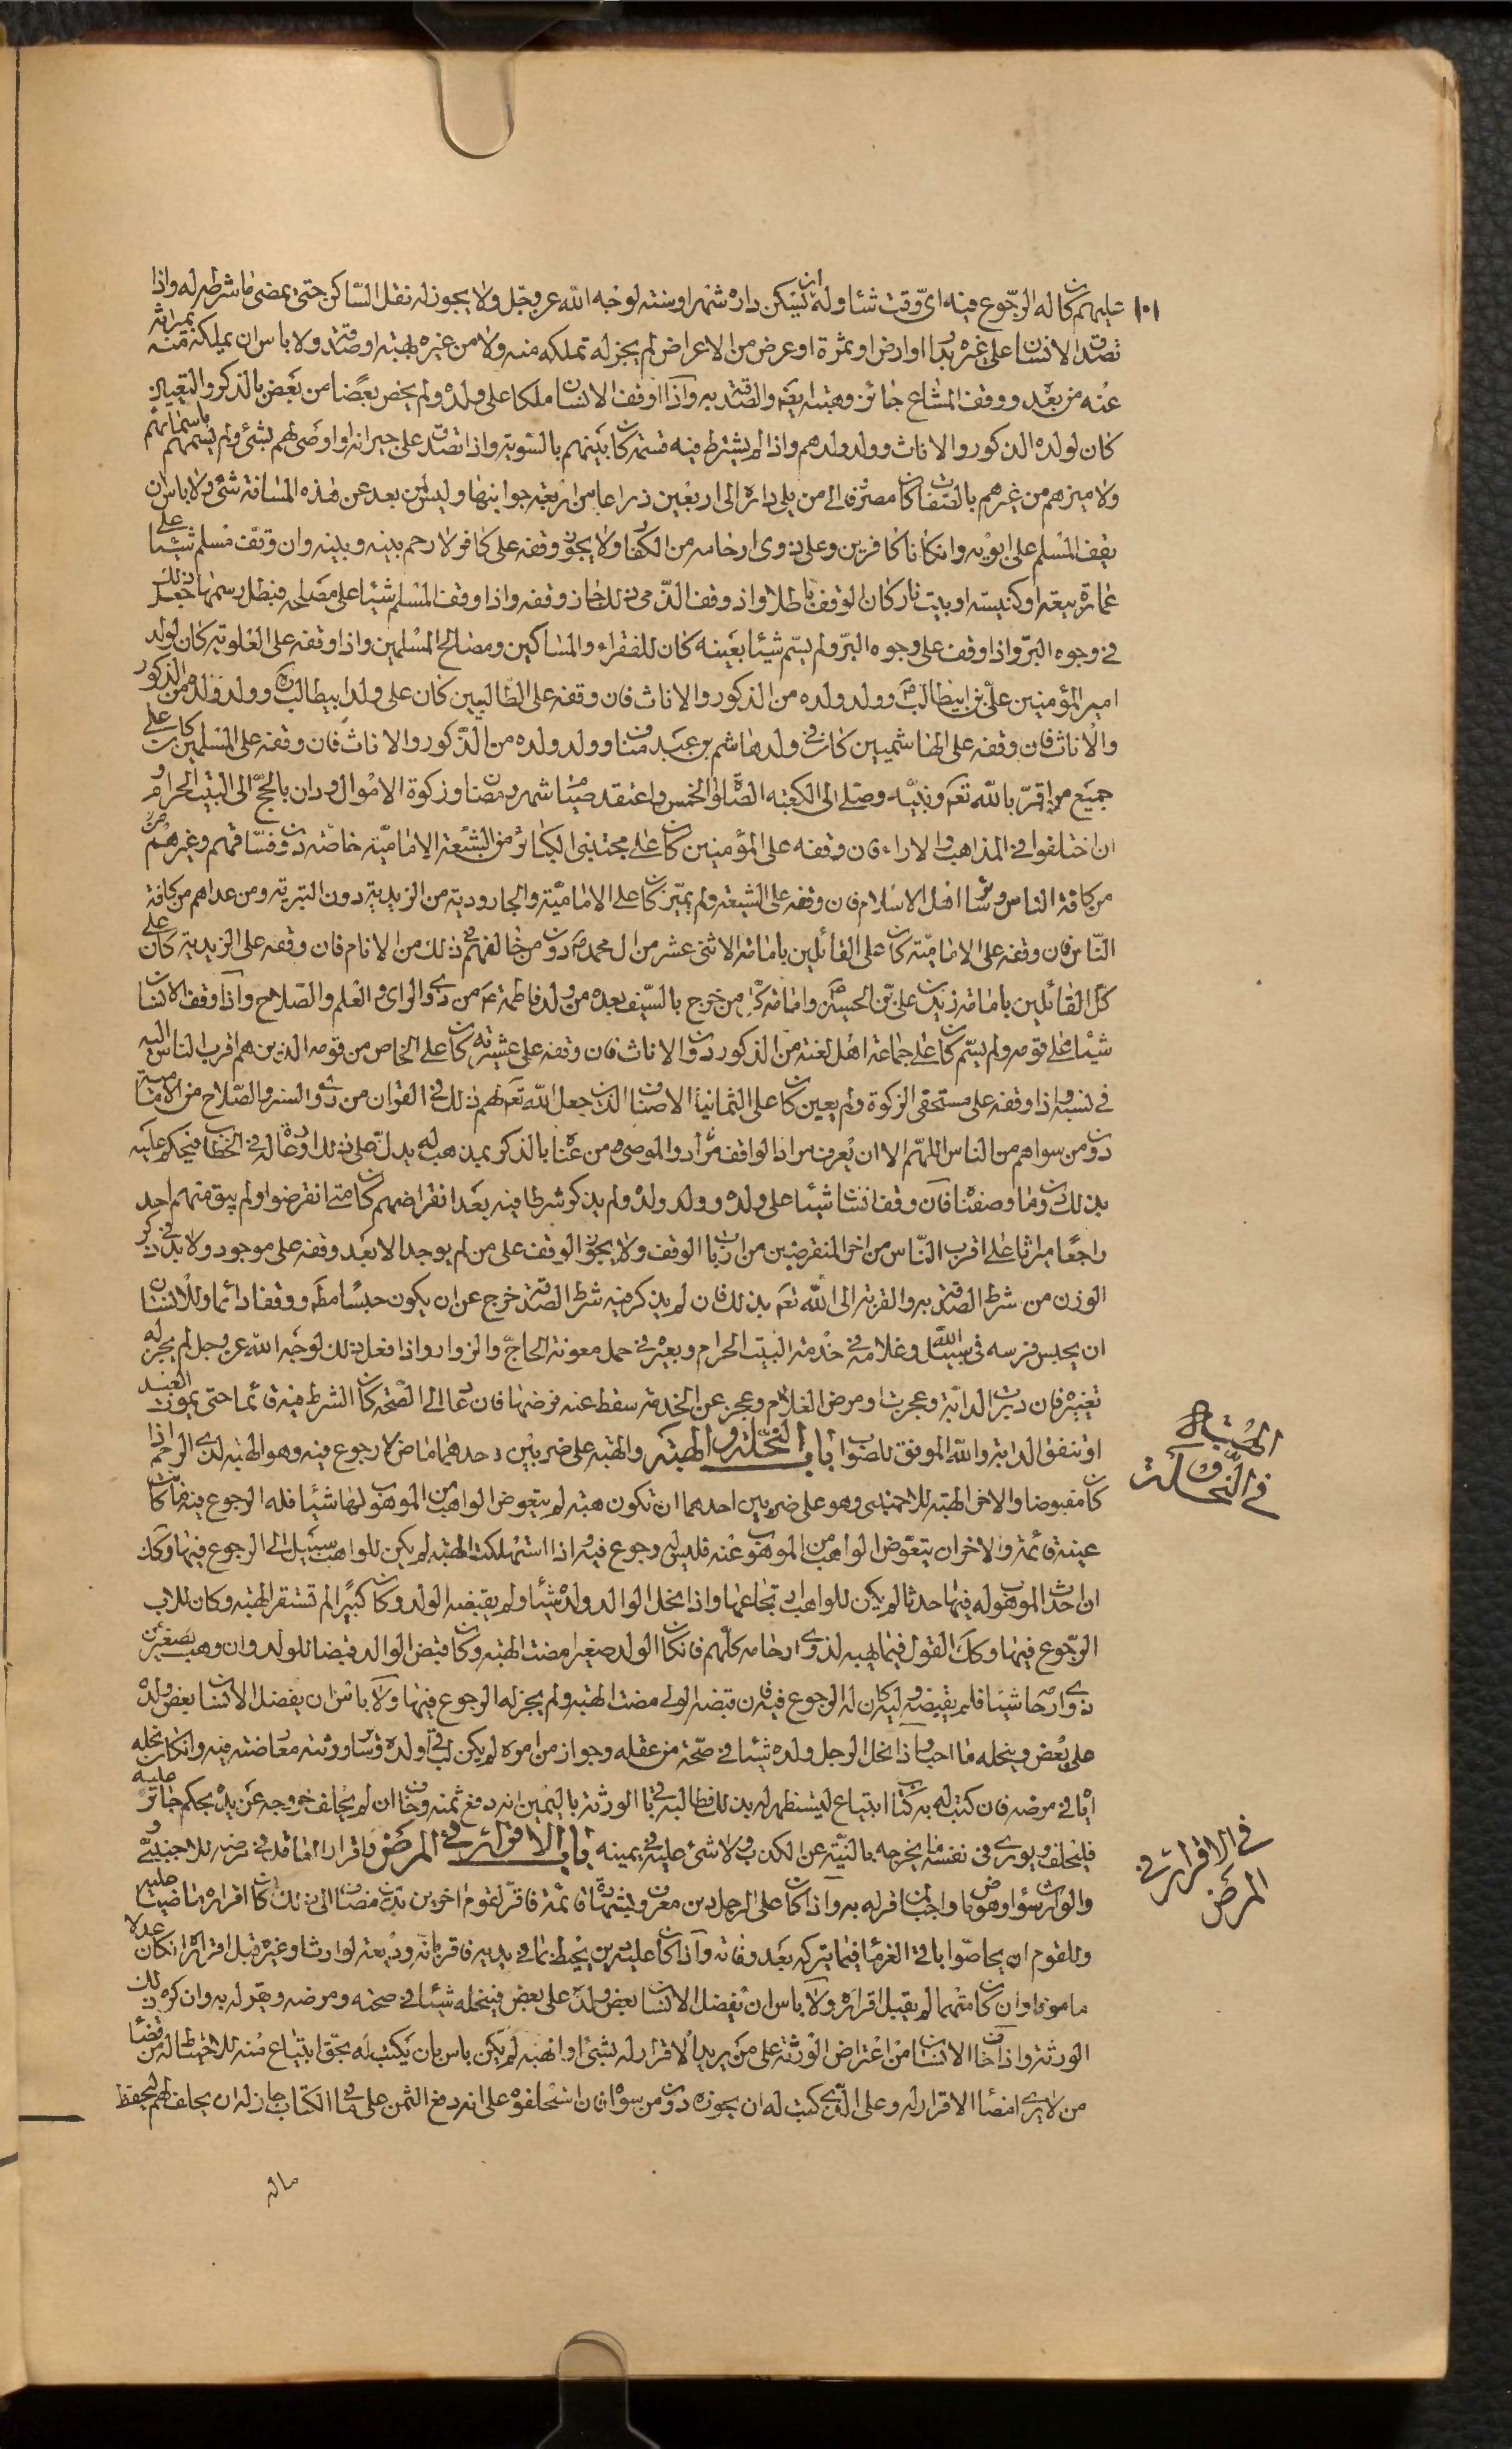 ١٠١ عليهم كان له الرجوع فيه اى وقت شاء وله ان يسكن داره شهرا او سنة لوجه الله عز وجل ولا يجوز له نقل الساكن حتى يمضى ما شرطه له واذا
تصدق الانسان على غيره بدار او ارض او ثمرة او عرض من الاعراض لم يجز له تملكه منه ولا من غيره بهبة او صدقة ولا باس ان يملكه منه بميراثه
عنه من بعد ووقف المشاع جائز وهبته ايضه والصدقة به واذا اوقف الانسان ملكا على ولده ولم يخص بعضا من بعض بالذكر والتعيين
كان لولده الذكور والاناث وولد ولدهم واذا لم يشترط فيه قسمة كان بينهم بالسوية واذا تصدق على جيرانه او اوصى لهم بشئ ولم يسمهم باسمائهم
ولا ميزهم من غيرهم بالصفات كان مصروفا الى من يلى داره الى اربعين ذراعا من اربعة جوانبها وليس لمن بعد عن هذه المسافة شئ ولا باس ان
يقف المسلم على ابويه وان كانا كافرين وعلى ذوى ارحامه من الكفار ولا يجوز وقفه على كافر لا رحم بينه وبينه وان وقف مسلم شيئا على
عمارة بيعة او كنيسة او بيت نار كان الوقف باطلا واذا وقف الذمى ذلك جاز وقفه واذا وقف المسلم شيئا على مصلحة فبطل رسمها جعل ذلك
فى وجوه البر واذا وقف على وجوه البر ولم يسم شيئا بعينه كان للفقراء والمساكين ومصالح المسلمين واذا وقفه على العلوية كان لولد
امير المؤمنين على بن ابيطالب وولد ولده من الذكور والاناث فان وقفه على الطالبيين كان على ولد ابيطالب ره وولد ولده من الذكور
والاناث فان وقفه على الهاشميين كان فى ولد هاشم بن عبد مناف وولد ولده من الذكور والاناث فان وقفه على المسلمين كان على
جميع من اقر بالله تعم ونبيه وصلى الى الكعبة الصلوات الخمس واعتقد صيام شهر رمضان وزكوة الاموال ودان بالحج الى البيت الحرام و
ان اختلفوا فى المذاهب والاراء فان وقفه على المؤمنين كان على مجتنبى الكبائر من الشيعة الامامية خاصة دون فساقهم وغيرهم من
من كافة الناس وسائر اهل الاسلام فان وقفه على الشيعة ولم يميز كان على الامامية والجارودية من الزيدية دون البترية ومن عداهم من كافة
الناس فان وقفه على الامامية كان على القائلين بامامة الاثنى عشر من ال محمد دون من خالفهم فى ذلك من الانام فان وقفه على الزيدية كان على
كل القائلين بامامة زيد بن على بن الحسين وامامة كل من خرج بالسيف بعده من ولد فاطمة ع من ذوى الراى والعلم والصلاح واذا وقف الانسان
شيئا على قومه ولم يسم كان على جماعة اهل لغته من الذكور دون الاناث فان وقفه على عشيرته كان على الخاص من قومه الذين هم اقرب الناس اليه
فى نسبه واذا وقفه على مستحقى الزكوة ولم يعين كان على الثمانية الاصناف الذين جعل الله تعم لهم ذلك فى القران من ذوى الستر والصلاح من الامامية
دون من سواهم من الناس اللهم الا ان يعرف مراد الواقف مراد والموصى من عنا بالذكر بمذهب له يدل على ذلك او عادة له فى الخطاب فيحكم عليه
بذلك دون ما وصفناه فان وقف انسان شيئا على ولده وولد ولده ولم يذكر شرطا فيه بعد انقراضهم كان متى انقرضوا ولم يبق منهم احد
راجعا ميراثا على اقرب الناس من اخر المنقرضين من ارباب الوقف ولا يجوز الوقف على من لم يوجد الا بعد وقفه على موجود ولا بد فى ذكر
الوقف من شرط الصدقة به والقربة الى الله تعم بذلك فان لم يذكر فيه شرط الصدقة خرج عن ان يكون حبسا مطه ووقفا دائما وللانسان
ان يحبس فرسه فى سبيل الله وغلامه فى خدمة البيت الحرام وبعيره فى حمل معونة الحاج والزوار واذا فعل ذلك لوجه الله عز وجل لم يجز له
تغييره فان دبرت الدابة وعجزت او مرض الغلام وعجز عن الخدمة سقط عنه فرضها فان عاد الى الصحة كان الشرط فيه قائما حتى يموت العبد
او تنفق الدابة والله الموفق للصواب باب النحلة والهبة والهبة على ضربين احدهما ماض لا رجوع فيه وهو الهبة لذى الرحم اذا
كان مقبوضا والاخر الهبة للاجنبى وهو على ضربين احدهما ان تكون هبة لم يتعوض الواهب من الموهوب لها شيئا فله الرجوع فيه ما كانت
عينه قائمة والاخر ان يتعوض الواهب من الموهوب عنه فليس له رجوع فيه واذا استهلكت الهبة لم يكن للواهب سبيل الى الرجوع فيها وكك
ان احدث الموهوب له فيها حدثا لم يكن للواهب ارتجاعها واذا نحل الوالد ولده شيئا ولم يقبضه الولد وكان كبيرا لم تستقر الهبة وكان للاب
الرجوع فيها وكك القول فيما يهبه لذوى ارحامه كلهم فان كان الولد صغيرا مضت الهبة وكان قبض الوالد قبضا للولد وان وهب لصغير من
ذوى ارحامه شيئا فلم يقبضه وليه كان له الرجوع فيه فان قبضه الولى مضت الهبة ولم يجز له الرجوع فيها ولا باس ان يفضل الانسان بعض ولده
على بعض وينحله ما احب واذا نحل الرجل ولده شيئا فى صحة من عقله وجواز من امره لم يكن لباقى ولده وسائر ورثته معارضته فيه وان كان نحله
اياه فى مرضه فان كتب له به كتاب ابتياع ليستظهر له بذلك فطالبه باقى الورثة باليمين انه دفع ثمنه وخاف ان لم يحلف خروجه عن يده بحكم جائر عليه
فليحلف ويورى فى نفسه ما يخرجه بالنية عن الكذب ولا شئ عليه فى يمينه باب الاقرار فى المرض واقرار العاقل فى مرضه للاجنبى و
والوارث سواء وهو ماض واجب لمن اقر له به واذا كان على الرجل دين معروف بشهادة قائمة فاقر لقوم اخرين بدين مضاف الى ذلك كان اقراره ماضيا عليه
وللقوم ان يحاصوا باقى الغرماء فيما يتركه بعد وفاته واذا كان عليه دين يحيط بما فى يديه فاقر بانه وديعة لوارث او غيره قبل اقراره ان كان عدلا
مامونا وان كان متهما لم يقبل اقراره ولا باس ان يفضل الانسان بعض ولده على بعض فينحله شيئا فى صحته ومرضه ويقر له به وان كره ذلك
الورثة واذا خاف الانسان من اعتراض الورثة على من يريد الاقرار له بشئ او الهبة لم يكن باس بان يكتب له بحق ابتياع منه للاحتياط له من قضاء
من لا يرى امضاء الاقرار له وعلى الذى كتب له ان يحوزه دون من سواه فان استحلفوه على انه دفع الثمن على ما فى الكتاب جاز له ان يحلف لهم ليحفظ
ماله
الهبة
فى النحلة و
فى الاقرار فى
المرض